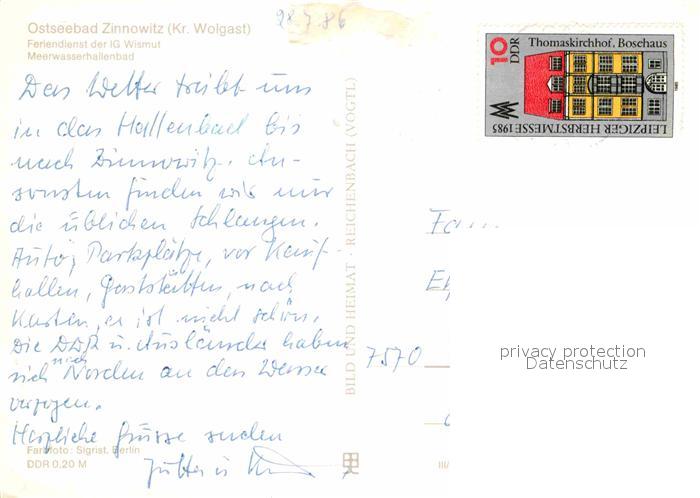 28.7.86
Ostseebad Zinnowitz (Kr. Wolgast)
Feriendienst der IG Wismut
Meerwasserhallenbad
Das Wetter treibt uns
in das Hallenbad bis
nach Zinnowitz. An-
sonsten finden wir nur
die üblichen Schlangen.
Autos, Parkplätze, vor Kauf-
hallen, Gaststätten, nach
Karten, es ist nicht schön.
Die DDR u. Ausländer haben
sich nach Norden an das Wasser
verzogen.
Herzliche Grüsse senden
Farbfoto: Sigrist, Berlin
DDR 0,20 M
BILD UND HEIMAT · REICHENBACH (VOGTL)
III/
10
DDR
Thomaskirchhof, Bosehaus
LEIPZIGER HERBSTMESSE 1985
Fa
7570
privacy protection
Datenschutz